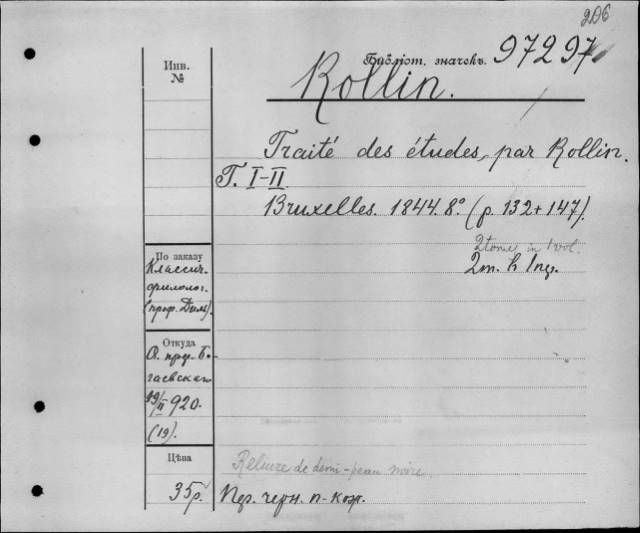 206
Инв. №
Библіот. значекъ. 97297
Rollin.
Traité des études, par Rollin.
T. I-II.
Bruxelles. 1844. 8° (p. 132 + 147).
2 tomes in 1 vol.
2 т. в 1 пер.
По заказу
Классич.
филолог.
(проф. Дит).
Откуда
О. пр. Бо-
гаевскаго
19/II 920.
(19).
Цѣна
35 р.
Reliure de demi-peau noire.
Пер. черн. п-кож.